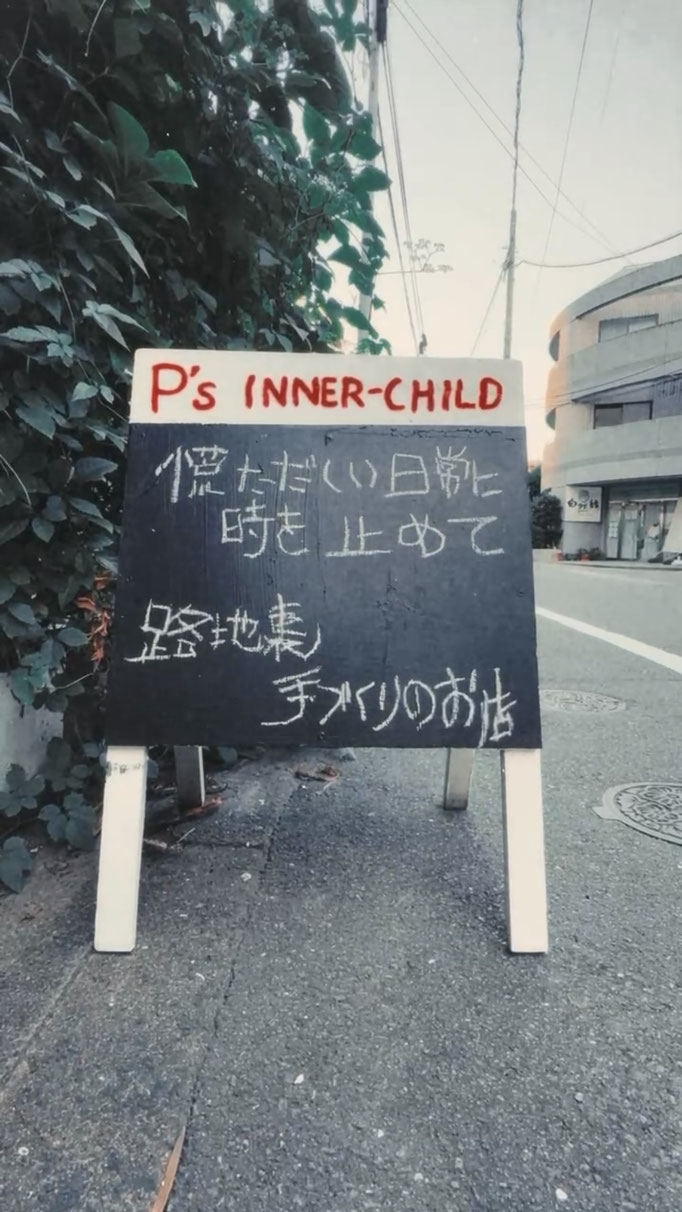 P's INNER-CHILD
慌ただしい日常に
時を止めて
路地裏
手づくりのお店